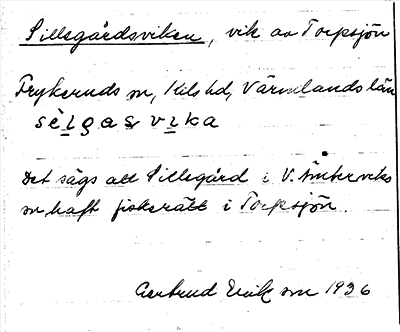 Sillegårdsviken, vik av Torpsjön
Frykeruds sn, Kils hd, Värmlands län
Det sägs att Sillegård i V. Ämterviks
sn haft fiskerätt i Torpsjön.
Gertrud Eriksson 1936